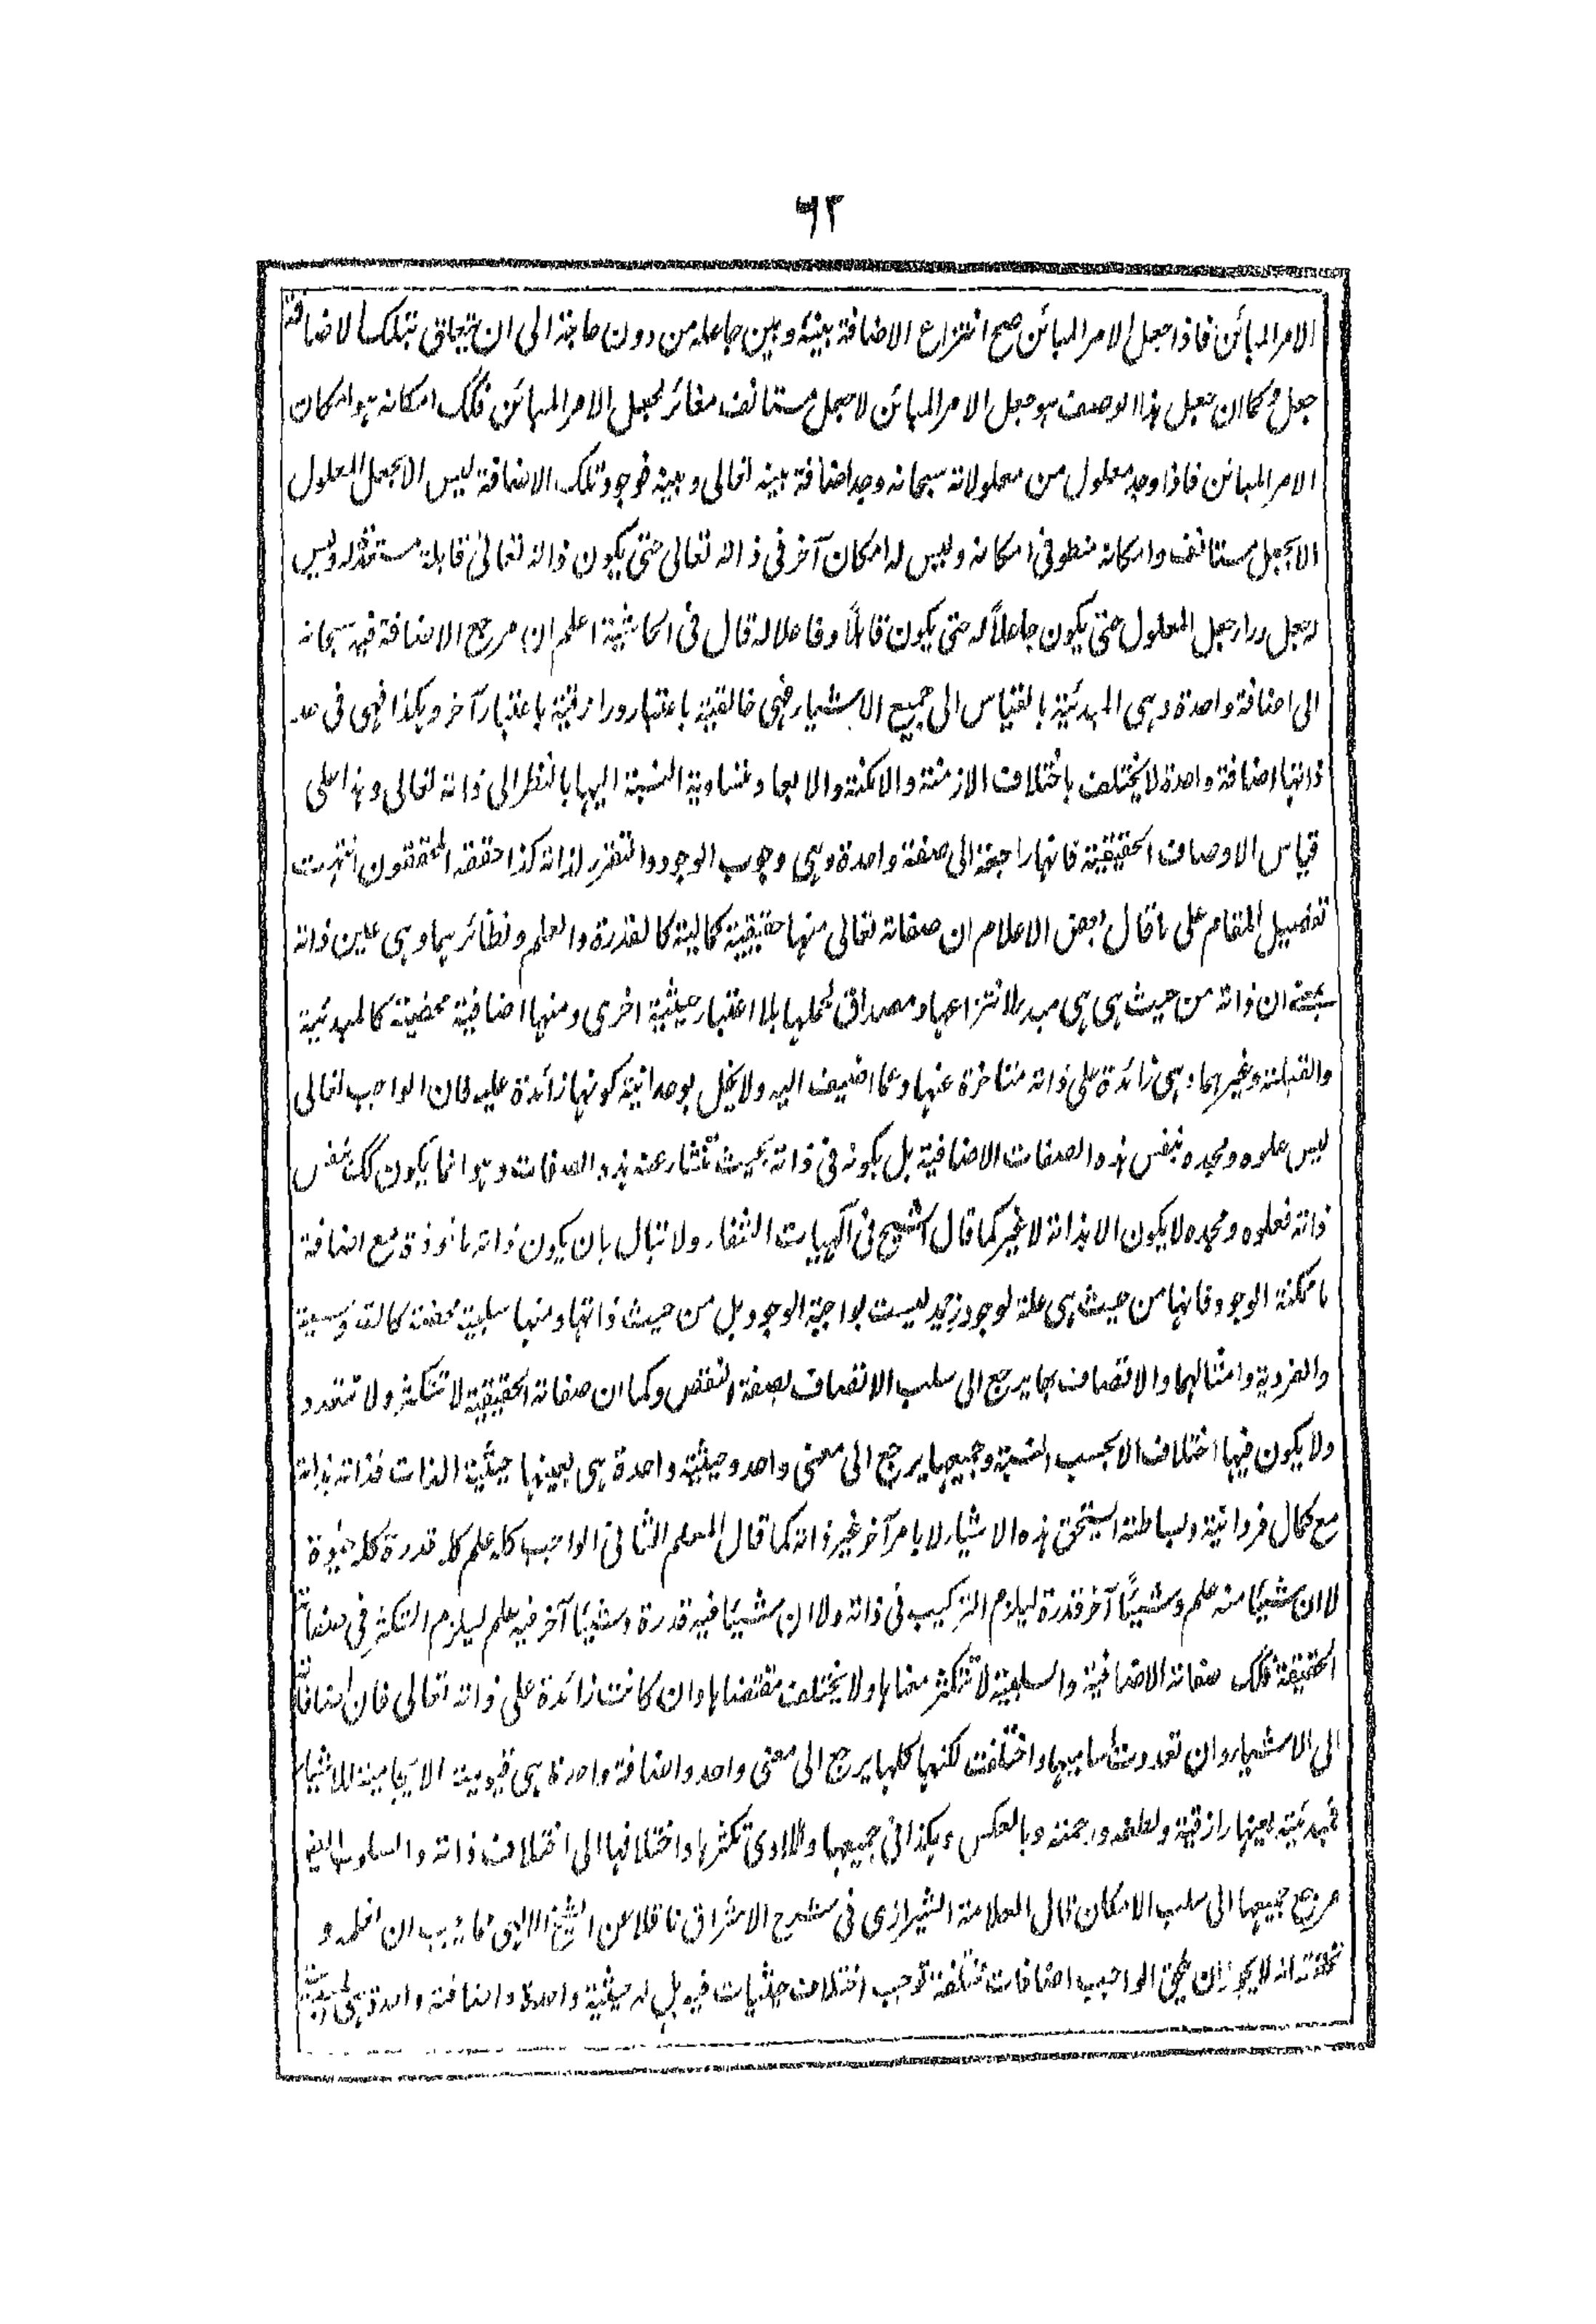 ٦٢
الامر المبائن فاذا جعل الامر المبائن صح انتزاع الاضافة بينه وبين جاعله من دون حاجة الى ان يتعلق بتلك الاضافة
جعل كما ان جعل هذا الوصف هو جعل الامر المبائن لا جعل مستانف مغائر لجعل الامر المبائن فكك امكانه هو امكان
الامر المبائن فاذا وجد معلول من معلولاته سبحانه وجد اضافة بينه تعالى وبينه فوجود تلك الاضافة ليس الا بجعل المعلول
الا بجعل مستانف وامكانه منطو فى امكانه وليس له امكان آخر فى ذاته تعالى حتى يكون ذاته تعالى قابلة مستعدة له وليس
له جعل وراء جعل المعلول حتى يكون جاعلاً له حتى يكون قابلاً وفاعلا له قال فى الحاشية اعلم ان مرجع الاضافة فيه سبحانه
الى اضافة واحدة وهى المبدئية بالقياس الى جميع الاشياء فهى خالقية باعتبار ورازقية باعتبار آخر وهكذا فهى فى حد
ذاتها اضافة واحدة لا يختلف باختلاف الازمنة والامكنة والابعاد متساوية النسبة اليها بالنظر الى ذاته تعالى وهذا على
قياس الاوصاف الحقيقية فانها راجعة الى صفة واحدة وهى وجوب الوجود والتقرر لذاته كذا حققه المحققون انتهت
تفصيل المقام على ما قال بعض الاعلام ان صفاته تعالى منها حقيقية كمالية كالقدرة والعلم ونظائرهما وهى عين ذاته
بمعنے ان ذاته من حيث هى هى مبدء لانتزاعها ومصداق لحملها بلا اعتبار حيثية اخرى ومنها اضافية محضية كالمبدئية
والقبلية وغيرهما وهى زائدة على ذاته متاخرة عنها وعما اضيف اليه ولا يخل بوحدانية كونها زائدة عليه فان الواجب تعالى
ليس علوه ومجده بنفس هذه الصفات الاضافية بل بكونه فى ذاته بحيث تنشار عنه هذه الصفات وهو انما يكون كك بنفس
ذاته فعلوه ومجده لا يكون الا بذاته لا غير كما قال الشيخ فى آلهيات الشفاء ولا تبال بان يكون ذاته ماخوذة مع اضافة
ما ممكنة الوجود فانها من حيث هى علة لوجود زيد ليست بواجبة الوجود بل من حيث ذاتها ومنها سلبية محضة كالقدوسية
والفردية وامثالهما والاتصاف بها يرجع الى سلب الاتصاف بصفة النقص وكما ان صفاته الحقيقية لا تتكثر ولا تتعدد
ولا يكون فيها اختلاف الا بحسب التسمية وجميعها يرجع الى معنى واحد وحيثية واحدة هى بعينها حيثية الذات فذاته بذاته
مع كمال فردانية وبساطته استحق هذه الاشياء لا بامر آخر غير ذاته كما قال المعلم الثانى الواجب كله علم كله قدرة كله حيوة
لا ان شيئا منه علم وشيئاً آخر قدرة ليلزم التركيب فى ذاته ولا ان شيئا فيه قدرة وشيئا آخر فيه علم ليلزم التكثر فى صفاته
الحقيقية فكك صفاته الاضافية والسلبية لا تتكثر معناها ولا يختلف مقتضاها وان كانت زائدة على ذاته تعالى فان اضافاته
الى الاشياء وان تعددت اساميها واختلفت لكنها كلها يرجع الى معنى واحد واضافة واحدة هى قيوميته الايجابية للاشياء
فمبدئية بعينها رازقية ولطفه ورحمته وبالعكس وهكذا فى جميعها والا ادى تكثرها واختلافها الى اختلاف ذاته والسلوب ايضا
مرجع جميعها الى سلب الامكان قال العلامة الشيرازى فى شرح الاشراق ناقلا عن الشيخ الالهى مما يجب ان تعلمه و
تحققه انه لا يجوز ان يلحق الواجب اضافات مختلفة توجب اختلاف حيثيات فيه بل له حيثية واحدة واضافة واحدة هى